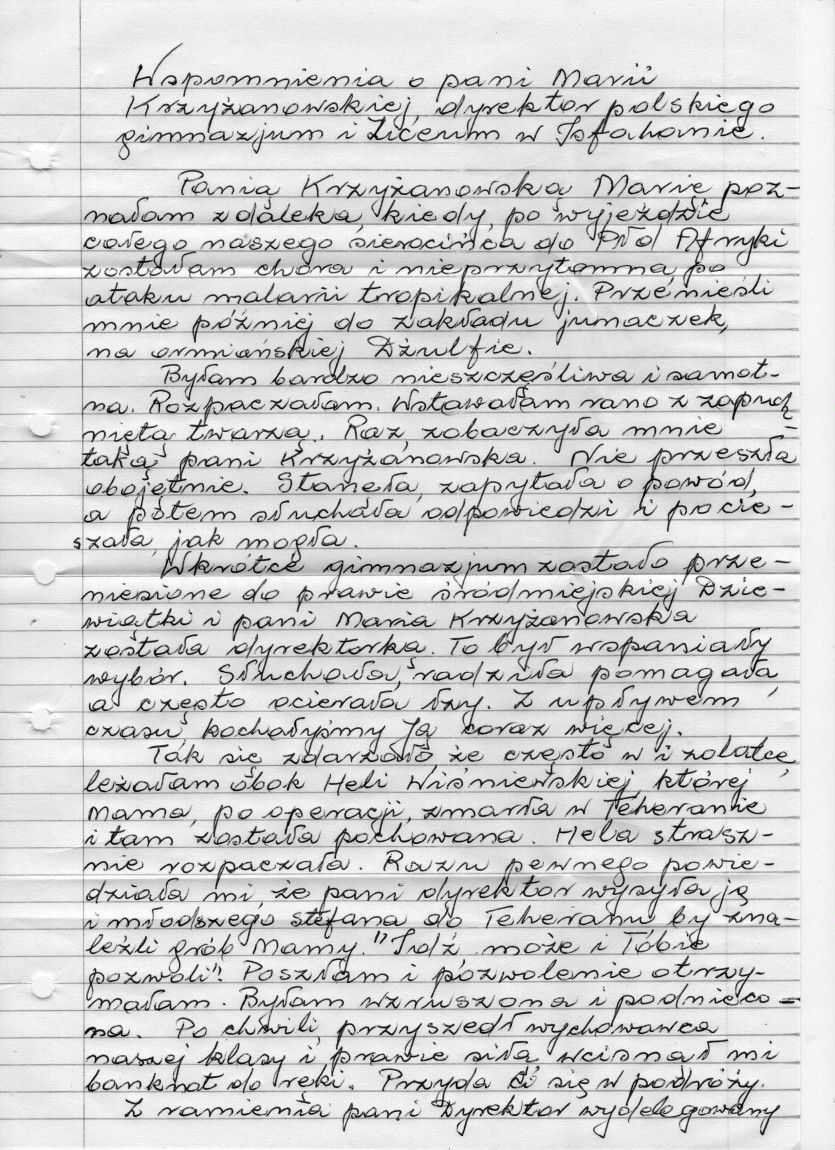 Wspomnienia o pani Marii
Krzyżanowskiej, dyrektor polskiego
gimnazjum i Liceum w Isfahanie.
Panią Krzyżanowską Marię poz-
nałam z daleka, kiedy, po wyjeździe
całego naszego sierocińca do Płd Afryki
zostałam chora i nieprzytomna po
ataku malarii tropikalnej. Przenieśli
mnie później do zakładu junaczek,
na ormiańskiej Dżulfie.
Byłam bardzo nieszczęśliwa i samot-
na. Rozpaczałam. Wstawałam rano z zapuch
niętą twarzą. Raz, zobaczyła mnie
taką pani Krzyżanowska. Nie przeszła
obojętnie. Stanęła, zapytała o powód,
a potem słuchała odpowiedzi i pocie-
szała, jak mogła.
Wkrótce gimnazjum zostało prze-
niesione do prawie śródmiejskiej Dzie-
wiątki i pani Maria Krzyżanowska
została dyrektorką. To był wspaniały
wybór. Słuchała, radziła pomagała,
a często ocierała łzy. Z upływem
czasu, kochałyśmy Ją coraz więcej.
Tak się zdarzało, że często w izolatce,
leżałam obok Heli Wiśniewskiej, której
Mama, po operacji, zmarła w Teheranie
i tam została pochowana. Hela strasz-
nie rozpaczała. Razu pewnego powie-
działa mi, że pani dyrektor wysyła ją
i młodszego Stefana do Teheranu by zna-
leźli grób Mamy. "Idź może i Tobie
pozwoli". Poszłam i pozwolenie otrzy-
małam. Byłam wzruszona i podnieco-
na. Po chwili, przyszedł wychowawca
naszej klasy i prawie siłą wcisnął mi
banknot do ręki. Przyda ci się w podróży.
Z ramienia pani Dyrektor wydelegowany